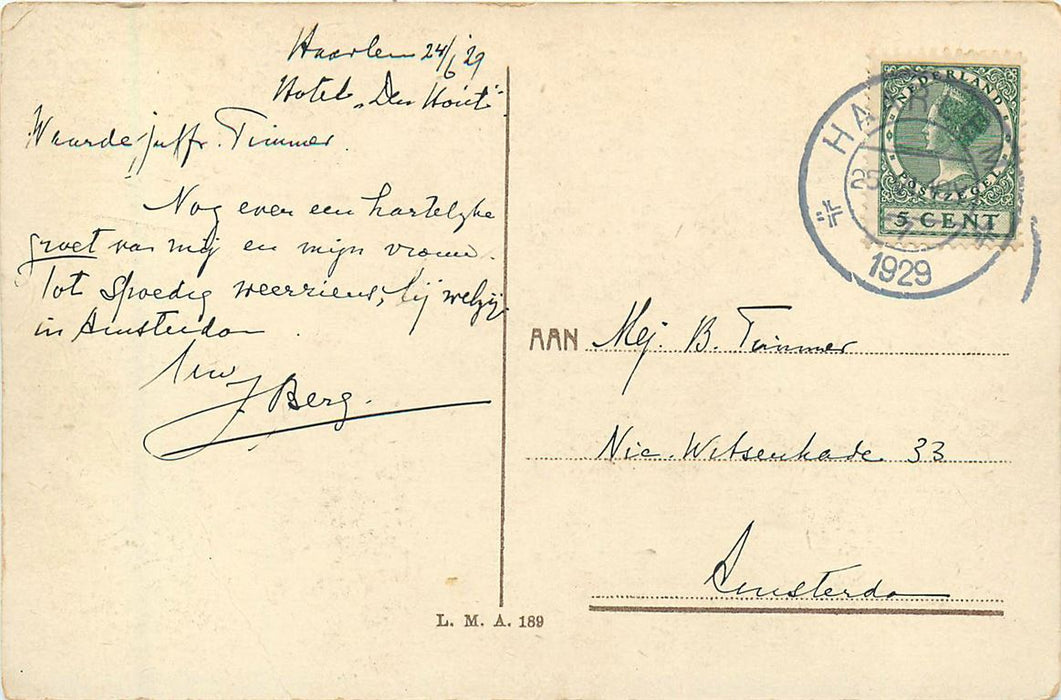 Haarlem 24/6 29
Hotel "Den Hout"
Waarde juffr. Timmer
Nog even een hartelyke
groet van mij en mijn vrouw.
Tot spoedig weerziens, bij welzijn
in Amsterdam.
Uw
J Berg.
L. M. A. 189
NEDERLAND
POSTZEGEL
5 CENT
HAARLEM
25
1929
AAN Mej. B. Timmer
Nic. Witsenkade 33
Amsterdam